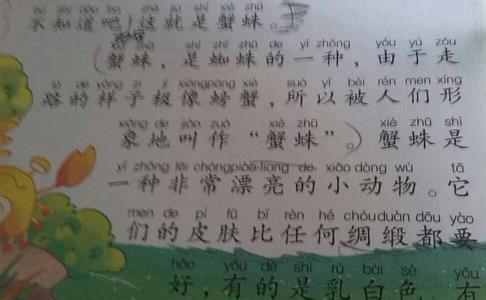 bù zhī dào ba zhè jiù shì xiè zhū
不知道吧!这就是蟹蛛。
zhū shì zhī zhū de yì zhǒng yóu yú zǒu
(蟹蛛,是蜘蛛的一种,由于走
lù de yàng zi jí xiàng páng xiè suǒ yǐ bèi rén men xíng
路的样子极像螃蟹,所以被人们形
xiàng de jiào zuò xiè zhū xiè zhū shì
象地叫作“蟹蛛”。)蟹蛛是
yì zhǒng fēi cháng piào liang de xiǎo dòng wù tā
一种非常漂亮的小动物。它
men de pí fū bǐ rèn hé chóu duàn dōu yào
们的皮肤比任何绸缎都要
hǎo yǒu de shì rǔ bái sè yǒu
好,有的是乳白色,有